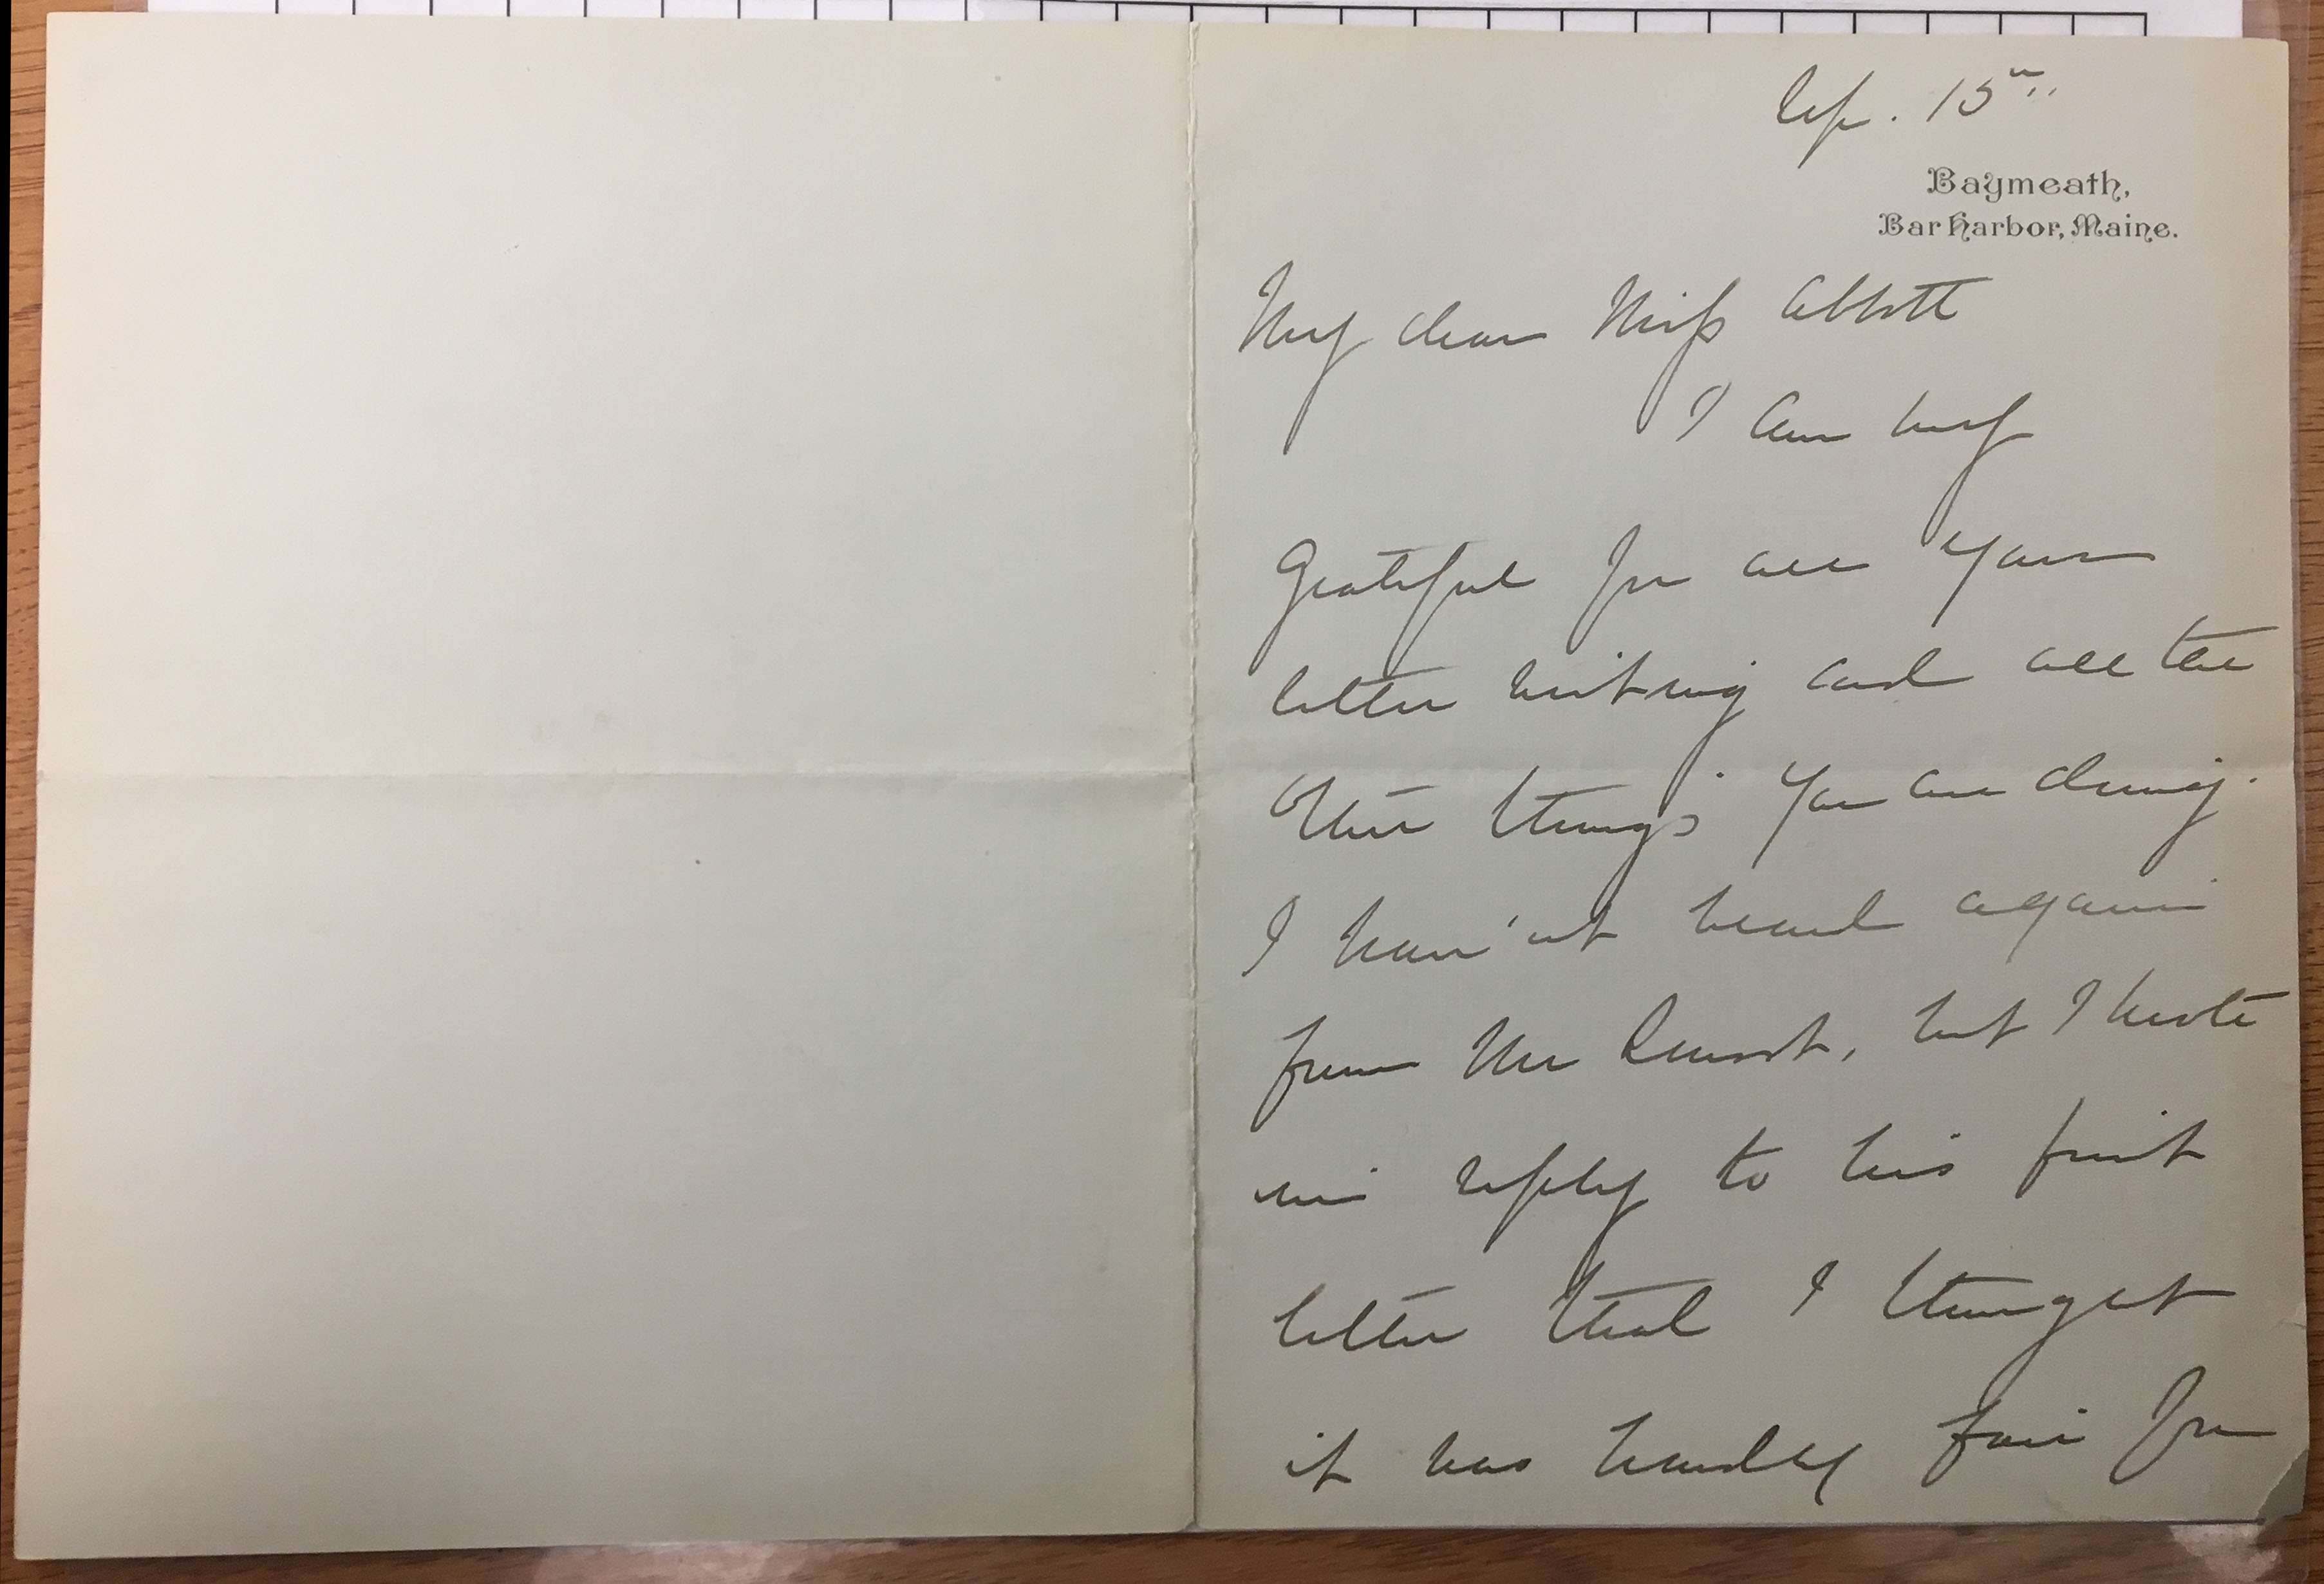 Sep. 15th
Baymeath,
Bar Harbor, Maine.
My dear Miss Abbott
I am very
grateful for all your
letter writing and all the
other things you are doing.
I have'nt heard again
from Mr but I wrote
in reply to his first
letter that I thought
it was hardly fair for